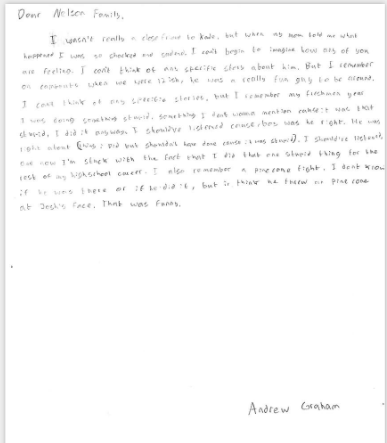 Dear Nelson Family,
I wasn't really a close friend to Kade, but when my mom told me what
happened I was so shocked and sad. I can't begin to imagine how any of you
are feeling. I can't think of any specific story about him. But I remember
on campouts when we were 12ish, he was a really fun guy to be around.
I can't think of any specific stories, but I remember my freshmen year
I was doing something stupid, something I dont wanna mention cause it was that
stupid, I did it anyways. I should've listened cause boy was he right. He was
right about (thing I did but shouldn't have done cause it was stupid). I should've listened,
and now I'm stuck with the fact that I did that one stupid thing for the
rest of my highschool career. I also remember a pinecone fight. I dont know
if he was there or if he did it, but I think he threw a pine cone
at Josh's face. That was funny.
Andrew Graham